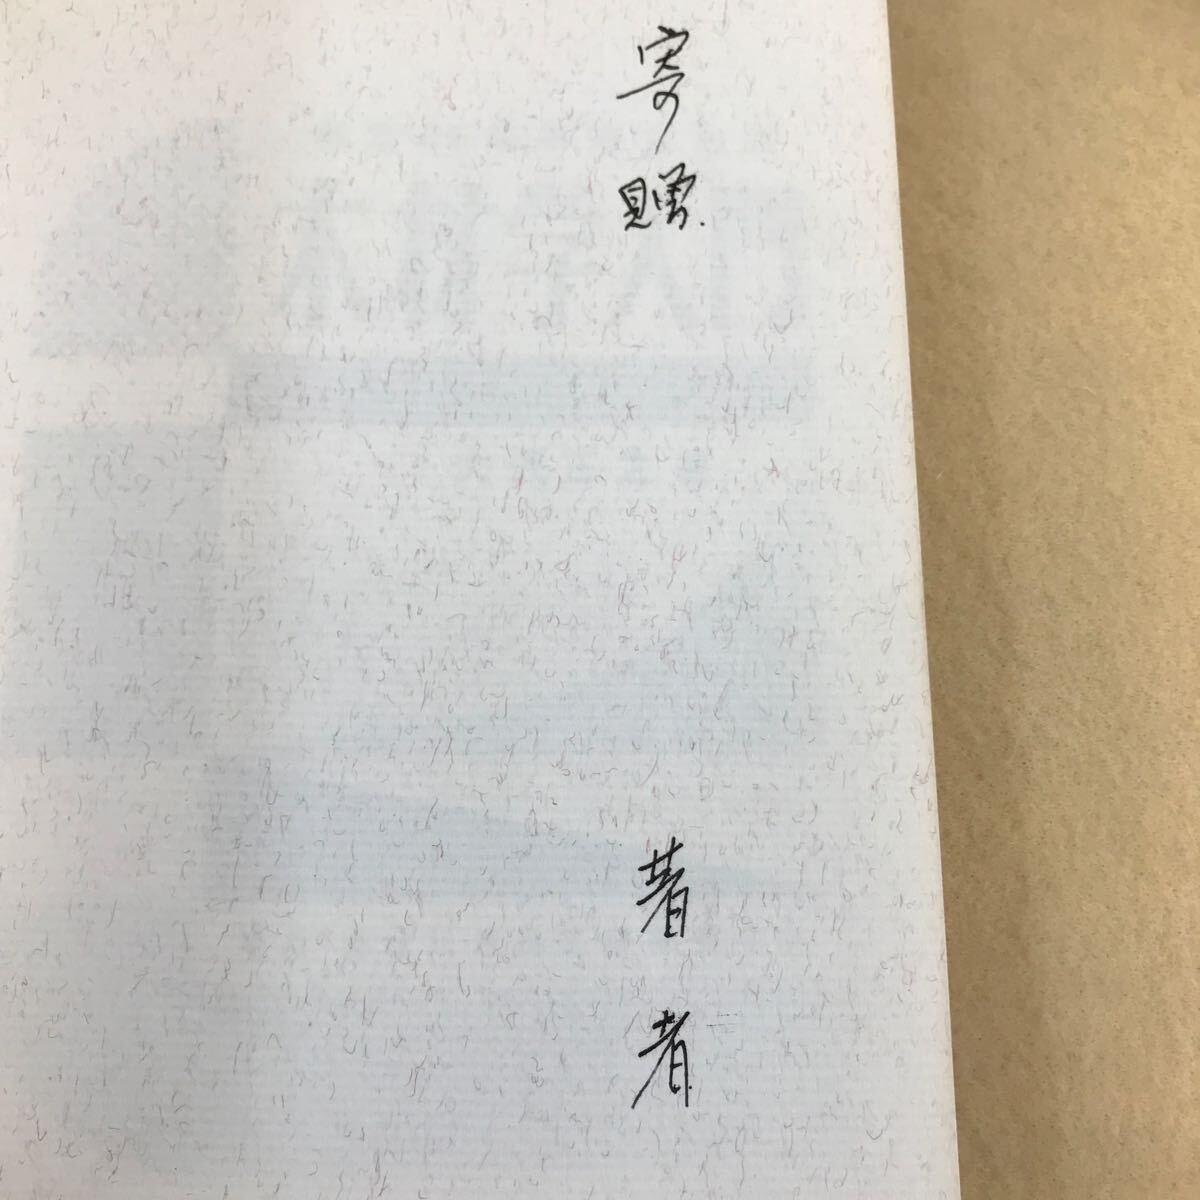 寄贈
著者